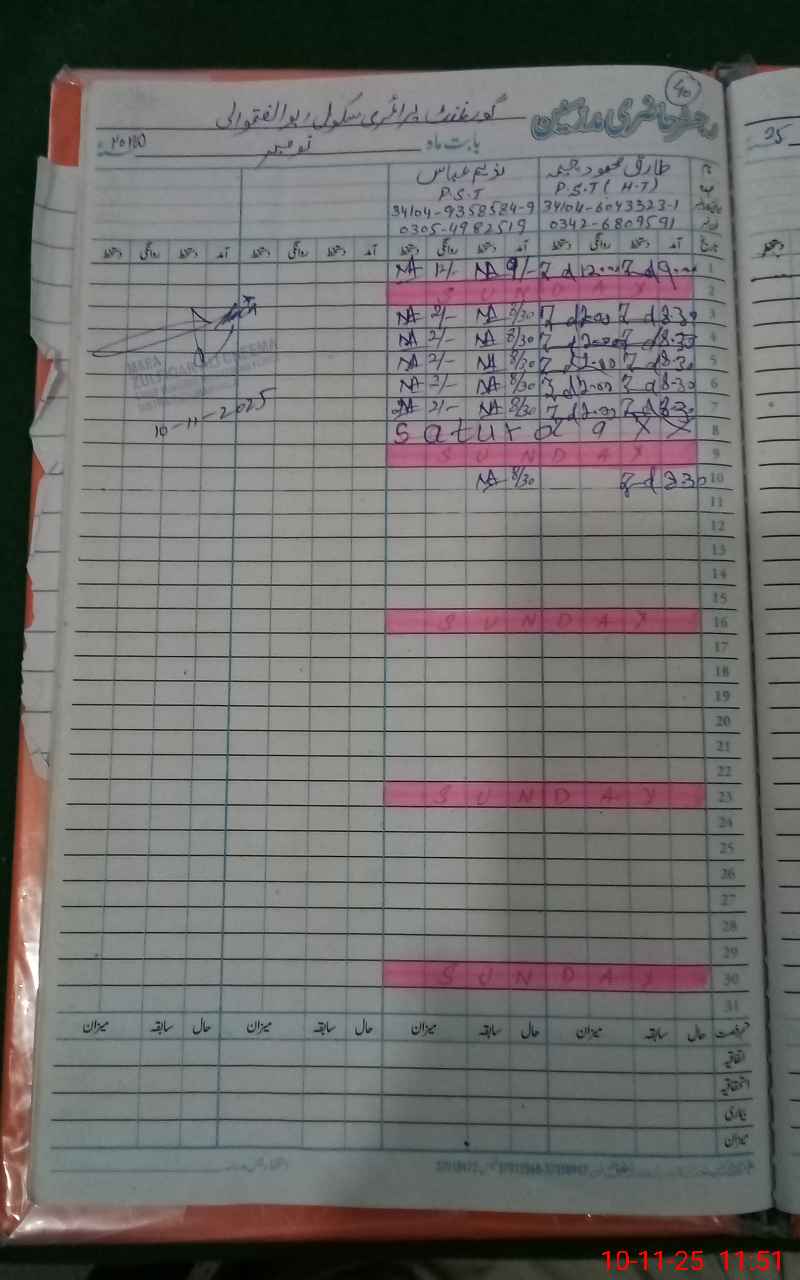 40
رجسٹر حاضری ملازمین گورنمنٹ پرائمری سکول
بابت ماہ نومبر ۲۰۲۵ء
طارق محمود چیمہ ندیم عباس
P.S.T (H.T) P.S.T
34104-6043323-1 34104-9358584-9
0342-6809591 0305-4982519
تاریخ آمد دستخط روانگی دستخط آمد دستخط روانگی دستخط آمد دستخط روانگی دستخط آمد دستخط روانگی دستخط
1 9.00 12.00 9/- NA 12/- NA
2 SUNDAY
3 8.30 2.00 8/30 NA 2/- NA
4 8.30 2.00 8/30 NA 2/- NA
5 8.30 2.00 8/30 NA 2/- NA
6 8.30 2.00 8/30 NA 2/- NA
7 8.30 2.00 8/30 NA 2/- NA
8 Saturday
9 SUNDAY
10 8.30 8/30 NA
10-11-2025
11
12
13
14
15
16 SUNDAY
17
18
19
20
21
22
23 SUNDAY
24
25
26
27
28
29
30 SUNDAY
31
رخصت حال سابقہ میزان حال سابقہ میزان حال سابقہ میزان حال سابقہ میزان
اتفاقیہ
استحقاقیہ
بیماری
میزان
25
دستخط
10-11-25 11:51